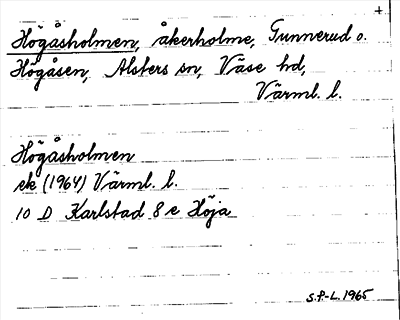 +
Högåsholmen, åkerholme, Gunnerud o.
Högåsen, Alsters sn, Väse hd,
Värml. l.
Högåsholmen
ek (1964) Värml. l.
10 D Karlstad 8 e Höja
S.P-L. 1965